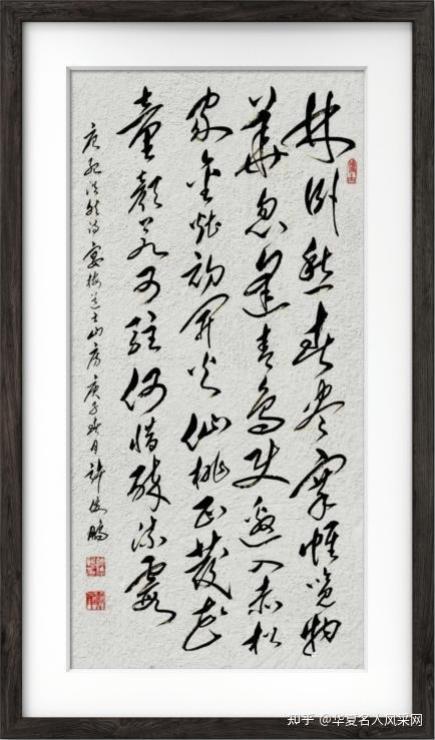 林卧愁春尽搴帷览物
華忽逢青鸟使邀入赤松
家金灶初开火仙桃正發花
童颜若可駐何惜醉流霞
唐孟浩然诗宴梅道士山房庚子秋月許俊鹏
知乎 @华夏名人风采网